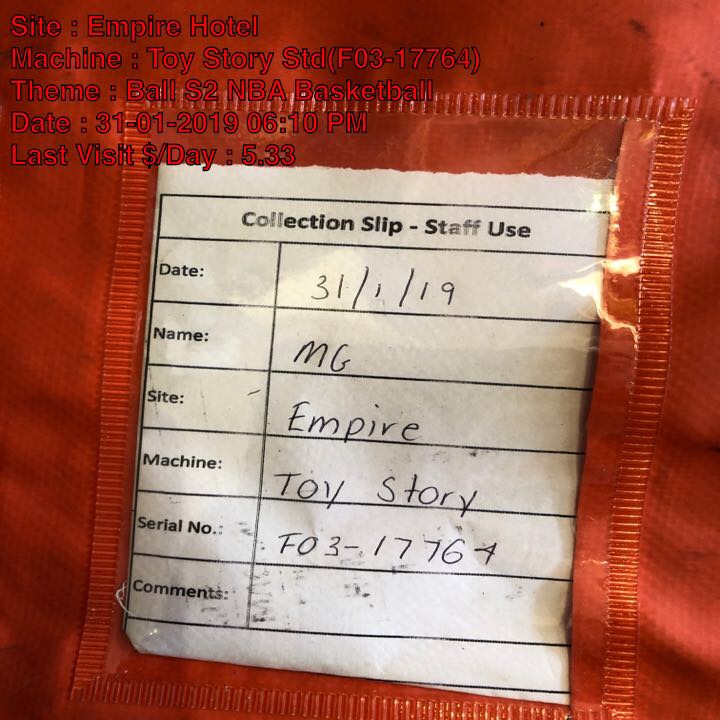 Site : Empire Hotel
Machine : Toy Story Std(F03-17764)
Theme : Ball S2 NBA Basketball
Date : 31-01-2019 06:10 PM
Last Visit $/Day : 5.33
Collection Slip - Staff Use
Date: 31/1/19
Name: MG
Site: Empire
Machine: Toy Story
Serial No.: F03-17764
Comments: